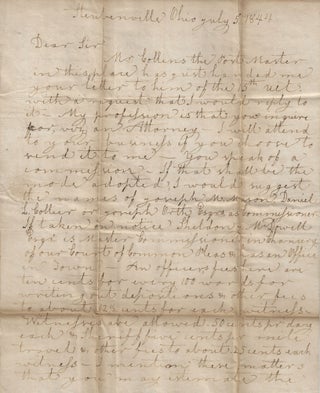 Steubenville Ohio July 5 1844
Dear Sir
Mr Collens the Post Master
in this place has just handed me
your letter to him of the 15th ult
with a request that I would reply to
it - My profession is that you inquire
for, viz, an Attorney - I will attend
to your business if you choose to
send it to me - You speak of a
commission - If that shall be the
mode adopted, I would suggest
the names of Joseph Mason, Daniel
L. Collier or Joseph Orth Esqrs as Commissioner.
If taken on notice, Sheldon
Esqr is Master Commissioner in chancery
of our Court of Common Pleas & has an Office
in town - An officers fees here are
ten cents for every 100 words for
writing out depositions & other fees
to about 12½ cents for each witness.
Witnesses are allowed 50 cents pr day
each & five cents pr mile
travel & other fees to about 25 cents each
witness - I mention these matters
that you may estimate the